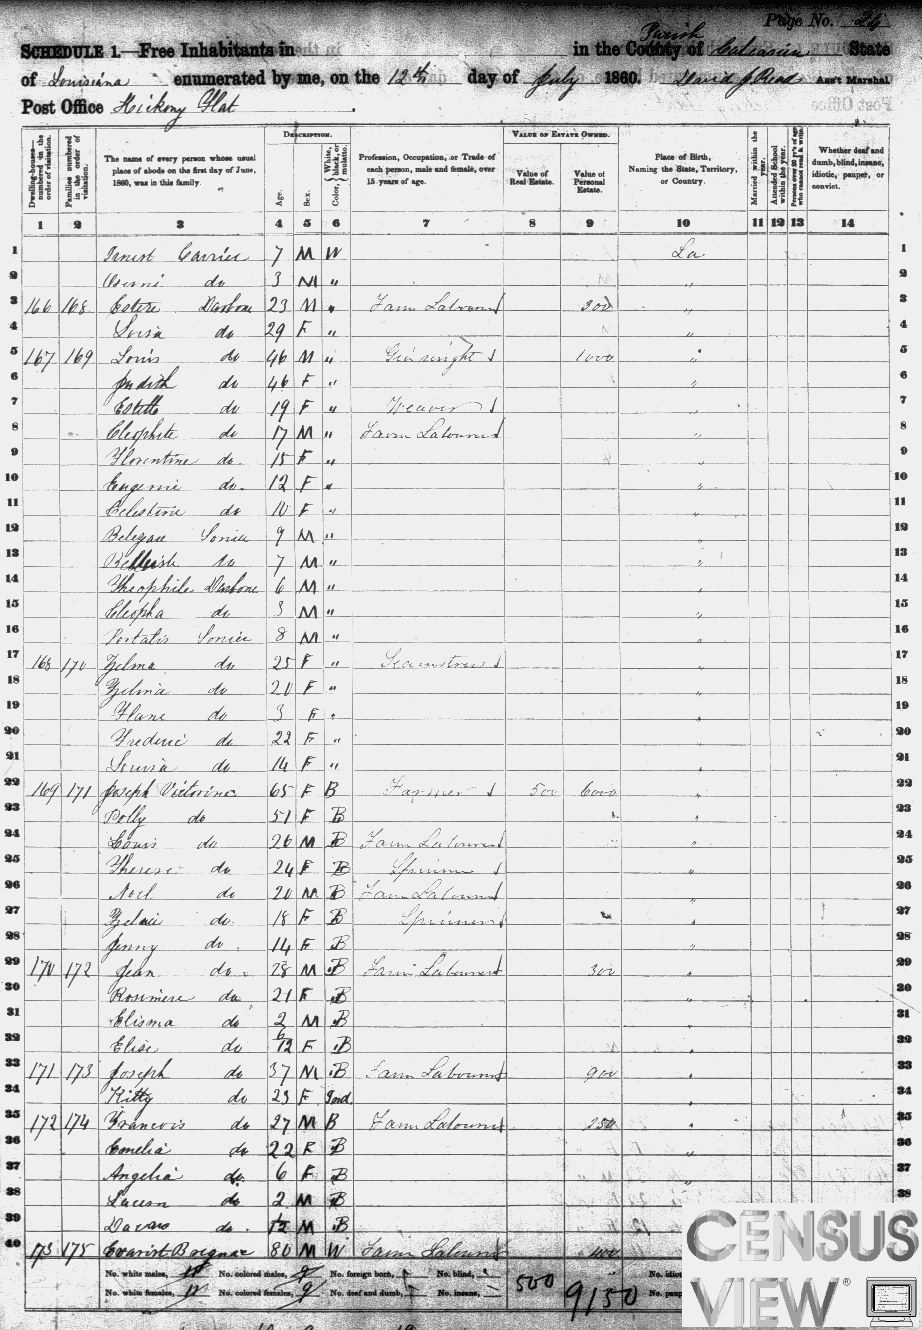 Page No. 26
SCHEDULE 1.—Free Inhabitants in in the County of Parish Calcasieu State
of Louisiana enumerated by me, on the 12th day of July 1860. David J Read Ass't Marshal
Post Office Hickory Flat
Dwelling-houses—numbered in the order of visitation. Families numbered in the order of visitation. The name of every person whose usual place of abode on the first day of June, 1860, was in this family. DESCRIPTION. Age. Sex. Color, White, black, or mulatto. Profession, Occupation, or Trade of each person, male and female, over 15 years of age. VALUE OF ESTATE OWNED. Value of Real Estate. Value of Personal Estate. Place of Birth, Naming the State, Territory, or Country. Married within the year. Attended School within the year. Persons over 20 y'rs of age who cannot read & write. Whether deaf and dumb, blind, insane, idiotic, pauper, or convict.
1 2 3 4 5 6 7 8 9 10 11 12 13 14
1 Ernest Carrier 7 M W La 1
2 do 3 M " " 2
3 166 168 Darbone 23 M " Farm Labourer 300 " 3
4 Louisa do 29 F " " 4
5 167 169 Louis do 46 M " Ginwright 1000 " 5
6 Judith do 46 F " " 6
7 do 19 F " Weaver " 7
8 Cleophite do 17 M " Farm Labourer " 8
9 Florentine do 15 F " " 9
10 Eugenie do 12 F " " 10
11 Celestine do 10 F " " 11
12 Sonier 9 M " " 12
13 do 7 M " " 13
14 Theophile Darbone 6 M " " 14
15 Cleopha do 3 M " " 15
16 Sonier 8 M " " 16
17 168 170 Zelma do 25 F " Seamstress " 17
18 Zelmia do 20 F " " 18
19 do 3 F " " 19
20 Frederic do 22 F " " 20
21 Louisa do 14 F " " 21
22 169 171 Joseph Victorine 65 F B Farmer 500 6000 " 22
23 Polly do 51 F B " 23
24 Louis do 26 M B Farm Labourer " 24
25 Therese do 24 F B Spinner " 25
26 Noel do 20 M B Farm Labourer " 26
27 do 18 F B Spinner " 27
28 Jenny do 14 F B " 28
29 170 172 Jean do 28 M B Farm Labourer 300 " 29
30 Rosimere do 21 F B " 30
31 Elisma do 2 M B " 31
32 Elise do 6/12 F B " 32
33 171 173 Joseph do 37 M B Farm Labourer 900 " 33
34 Kitty do 23 F Ind. " 34
35 172 174 Francois do 27 M B Farm Labourer 250 " 35
36 Emelia do 22 F B " 36
37 Angelia do 6 F B " 37
38 do 2 M B 38
39 do 1/12 M B
40 173 175 Evarist Bregnac 80 M W Farm Labourer 400
No. white males, No. colored males, 9 No. foreign born, No. blind, No. idiotic,
No. white females, No. colored females, 9 No. deaf and dumb, No. insane, 500 9150
CENSUS
VIEW®